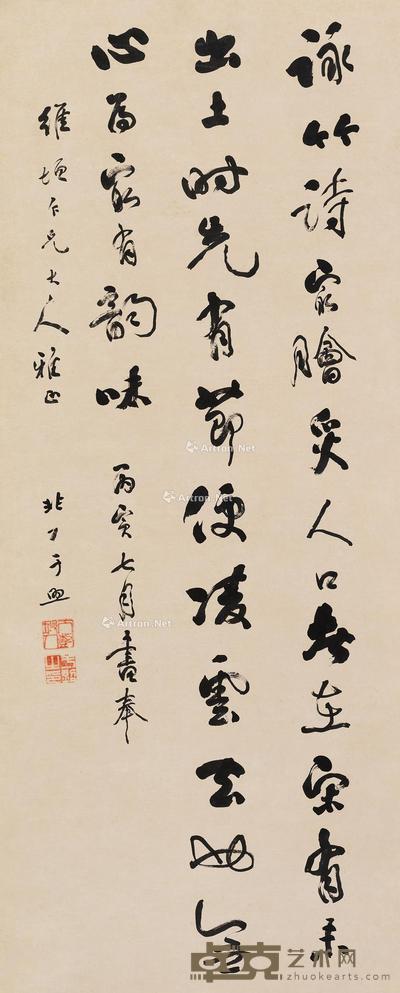 詠竹詩最膾炙人口者在宋有未
出土時先有節便凌雲去也無
心為最有韻味 丙寅七月書奉
維垣仁兄大人雅正 非厂于照
Artron.Net
Artron.Net
Artron.Net
Artron.Net
卓克艺术网
zhuokearts.com